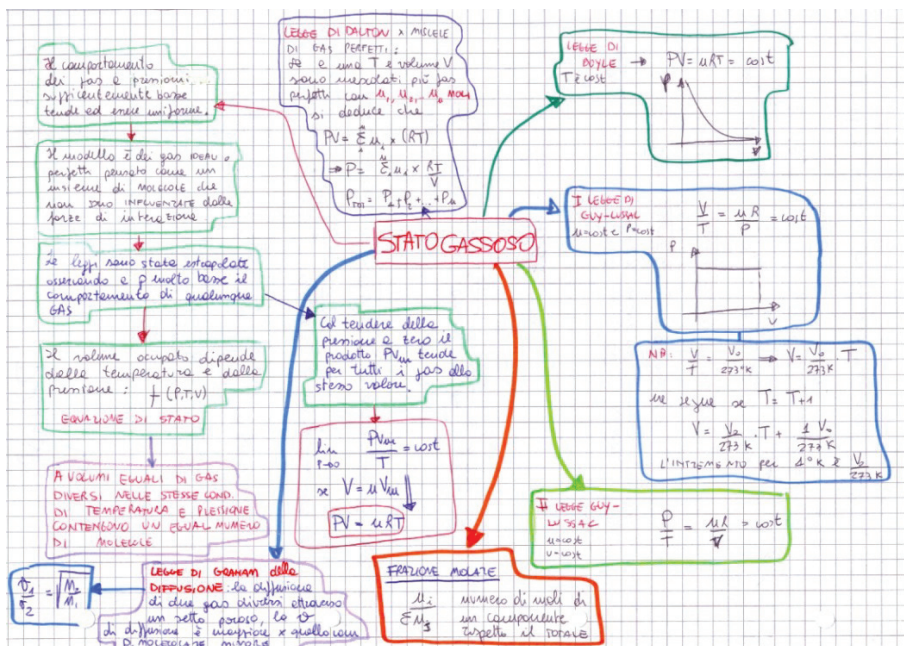 STATO GASSOSO
Il comportamento
dei gas a pressioni
sufficientemente basse
tende ad essere uniforme.
Il modello è dei gas IDEALI o
perfetti pensato come un
insieme di MOLECOLE che
non sono INFLUENZATE dalle
forze di interazione
Le leggi sono state estrapolate
osservando a p molto basse il
comportamento di qualunque
GAS
Il volume occupato dipende
dalla temperatura e dalla
pressione: f (P,T,V)
EQUAZIONE DI STATO
A VOLUMI EGUALI DI GAS
DIVERSI NELLE STESSE COND.
DI TEMPERATURA E PRESSIONE
CONTENGONO UN EGUAL NUMERO
DI MOLECOLE
LEGGE DI DALTON x MISCELE
DI GAS PERFETTI:
Se a una T e volume V
sono mescolati più gas
perfetti con moli
si deduce che
PV = Σ n × (RT)
⇒ P = Σ n × RT/V
Col tendere della
pressione a zero il
prodotto PVm tende
per tutti i gas allo
stesso valore.
lim P→0 PVm/T = cost
se V = n Vm
PV = nRT
LEGGE DI
BOYLE → PV = nRT = cost
T è cost
P
V
I LEGGE DI
GUY-LUSSAC V/T = nR/P = cost
n=cost e P=cost
P
V
NB: V/T = V₀/273°K ⇒ V = V₀/273K · T
ne segue se T = T+1
V = V₀/273K · T + 1 V₀/273K
L'INCREMENTO per 1°K è V₀/273K
II LEGGE GUY-
LUSSAC P/T = nR/V = cost
n=cost
V=cost
FRAZIONE MOLARE
numero di moli di
un componente
rispetto il TOTALE
LEGGE DI GRAHAM della
DIFFUSIONE: la diffusione
di due gas diversi attraverso
un setto poroso, la v
di diffusione è maggiore x quello con
v₁/v₂ = √M₂/M₁